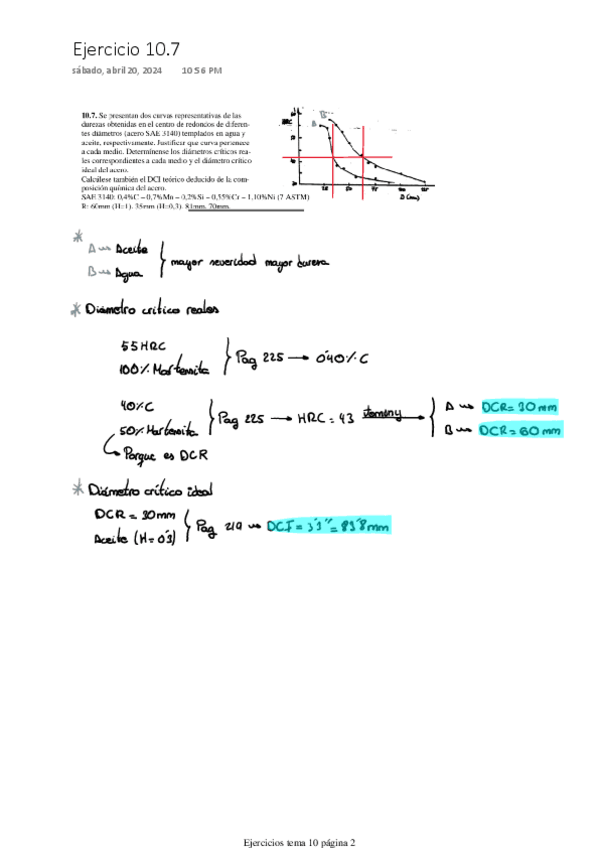 Ejercicio 10.7
sábado, abril 20, 2024 10:56 PM
10.7. Se presentan dos curvas representativas de las
durezas obtenidas en el centro de redondos de diferen-
tes diámetros (acero SAE 3140) templados en agua y
aceite, respectivamente. Justificar que curva pertenece
a cada medio. Determínense los diámetros críticos rea-
les correspondientes a cada medio y el diámetro crítico
ideal del acero.
Calcúlese también el DCI teórico deducido de la com-
posición química del acero.
SAE 3140: 0,4%C – 0,7%Mn – 0,2%Si – 0,55%Cr – 1,10%Ni (7 ASTM)
R: 60mm (H=1), 35mm (H=0,3), 81mm, 70mm.
HRC
A
B
D (mm)
*
A Aceite
B Agua
mayor severidad mayor dureza
* Diámetro crítico reales
55 HRC
100% Martensita
Pag 225 → 0'40% C
40% C
50% Martensita
Porque es DCR
Pag 225 → HRC = 43 Jominy
A DCR = 30 mm
B DCR = 60 mm
* Diámetro crítico ideal
DCR = 30 mm
Aceite (H = 0'3)
Pag 219 DCI = 3'3" = 83'8 mm
Ejercicios tema 10 página 2